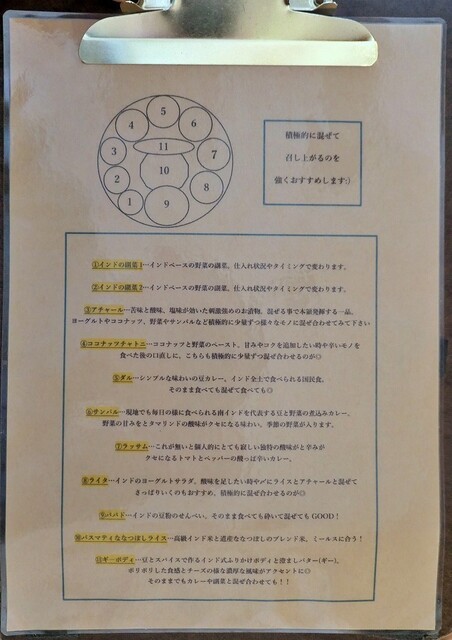 5
4
6
3
11
7
10
2
8
1
9
積極的に混ぜて
召し上がるのを
強くおすすめします:)
①インドの副菜1…インドベースの野菜の副菜。仕入れ状況やタイミングで変わります。
②インドの副菜2…インドベースの野菜の副菜。仕入れ状況やタイミングで変わります。
③アチャール…苦味と酸味、塩味が効いた刺激強めのお漬物。混ぜる事で本領発揮する一品。
ヨーグルトやココナッツ、野菜やサンバルなど積極的に少量ずつ様々なモノに混ぜ合わせてみて下さい
④ココナッツチャトニ…ココナッツと野菜のペースト。甘みやコクを追加したい時や辛いモノを
食べた後の口直しに。こちらも積極的に少量ずつ混ぜ合わせるのが◎
⑤ダル…シンプルな味わいの豆カレー。インド全土で食べられる国民食。
そのまま食べても混ぜて食べても◎
⑥サンバル…現地でも毎日の様に食べられる南インドを代表する豆と野菜の煮込みカレー。
野菜の甘みをとタマリンドの酸味がクセになる味わい。季節の野菜が入ります。
⑦ラッサム…これが無いと個人的にとても寂しい独特の酸味がと辛みが
クセになるトマトとペッパーの酸っぱ辛いカレー。
⑧ライタ…インドのヨーグルトサラダ。酸味を足したい時や〆にライスとアチャールと混ぜて
さっぱりいくのもおすすめ。積極的に混ぜ合わせるのが◎
⑨パパド…インドの豆粉のせんべい。そのまま食べても砕いて混ぜてもGOOD！
⑩バスマティななつぼしライス…高級インド米と道産ななつぼしのブレンド米。ミールスに合う！
⑪ギーポディ…豆とスパイスで作るインド式ふりかけポディと澄ましバター(ギー)。
ポリポリした食感とチーズの様な濃厚な風味がアクセントに◎
そのままでもカレーや副菜と混ぜ合わせても！！